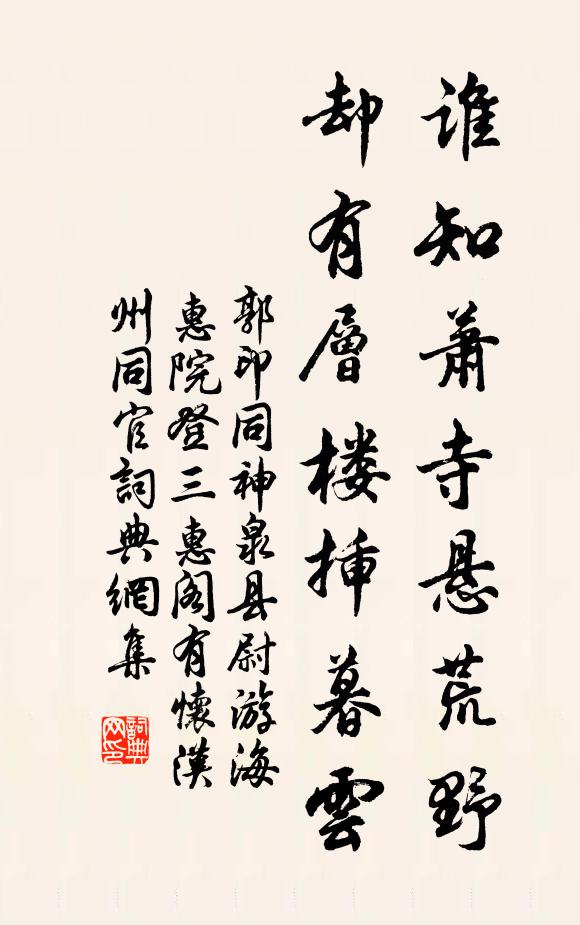 誰知蕭寺悬荒野
却有層楼揷暮雲
郭印同神泉县尉游海
惠院登三惠阁有懷漢
州同官詞典網集
詞典网印